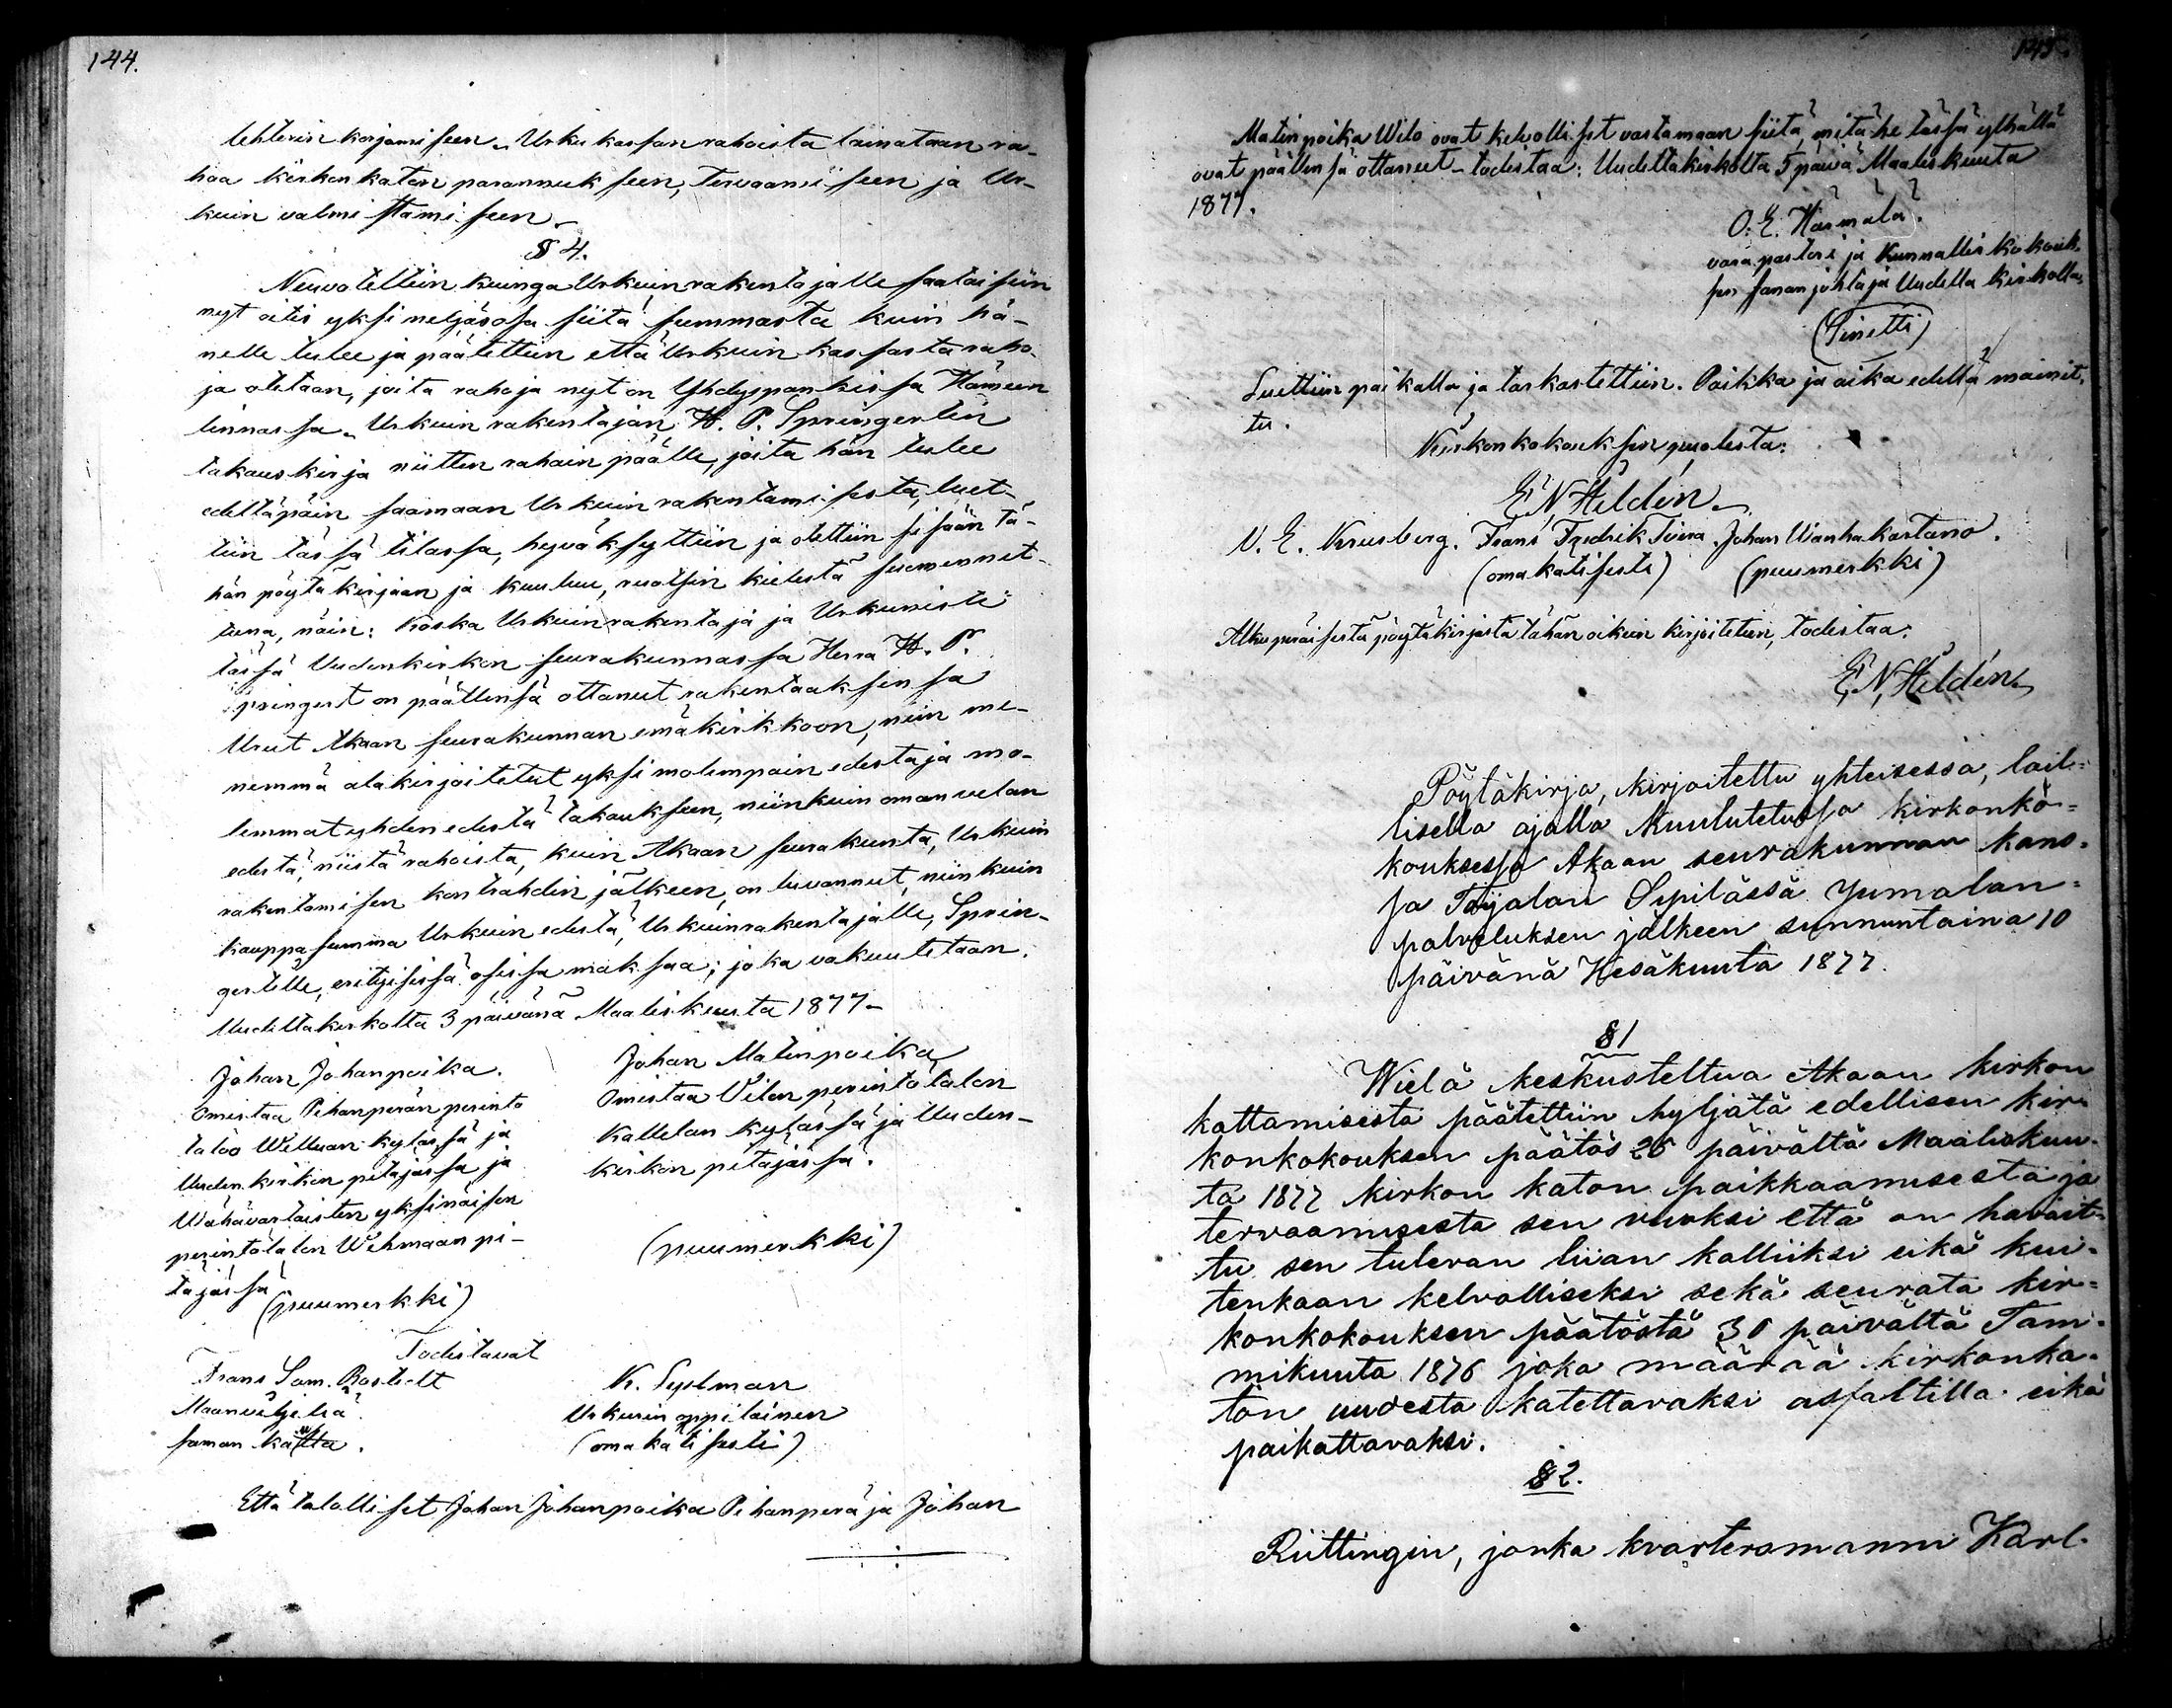 144.
lehterin korjamiseen. Urku kassan rahoista lainataan ra-
haa kirkon katon parannukseen, tervaamiseen ja Ur-
kuin valmistamiseen.
§ 4.
Neuvoteltiin kuinga Urkuinrakentajalle saataisiin
nyt oitis yksi neljäsosa siitä summasta kuin hä-
nelle tulee ja päätettiin että Urkuin kassasta raho-
ja otetaan, joita rahoja nyt on Yhdyspankissa Hämeen
linnassa. Urkuin rakentajan H. P. Springertin
takauskirja niitten rahain päälle, joita hän tulee
edeltäpäin saamaan Urkuin rakentamisesta, luet-
tiin tässä tilassa, hyväksyttiin ja otettiin sisään tä-
hän pöytäkirjaan ja kuuluu, ruotsin kielestä suomennet-
tuna, näin: Koska Urkuinrakentaja ja Urkuniste
tässä Uudenkirkon seurakunnassa Herra H. P.
Springert on päällensä ottanut rakentaaksensa
Urut Akaan seurakunnan emäkirkkoon, niin me-
nemmä alakirjoitetut yksi molempain edestä ja mo-
lemmat yhden edestä takaukseen, niinkuin oman velan
edestä, niistä rahoista, kuin Akaan seurakunta, Urkuin
rakentamisen kontrahdin jälkeen, on luvannut, niinkuin
kauppasumma Urkuin edestä, Urkuinrakentajalle, Sprin-
gertille, erityisissä osissa maksaa; joka vakuutetaan.
Uudeltakirkolta 3 päivänä Maaliskuuta 1877.
Johan Johanpoika.
Omistaa Pihanperän perintö
taloo Welluan kylässä ja
Uuden kirkon pitäjässä ja
Wähävartaisten yksinäisen
perintötalon Wehmaan pi-
täjässä
(puumerkki)
Johan Matinpoika
Omistaa Wilon perintötalon
Kallelan kylässä ja Uuden-
kirkon pitäjässä.
(puumerkki)
Todistavat
Frans Sam. Rostedt
Maanviljeliä
saman kautta.
K. Sylman
Urkuin oppilainen
(omakätisesti)
Että talolliset Johan Johanpoika Pihanperä ja Johan
145.
Matinpoika Wilo ovat kelvolliset vastamaan siitä, mitä he tässä ylhällä
ovat päällensä ottaneet todistaa: Uudeltakirkolta 5 päivä Maaliskuuta
1877.
O. E. Härmälä.
varapastori ja Kunnalliskokouk-
sen sananjohtaja Uudella kirkolla.
(Sinetti)
Luettiin paikalla ja tarkastettiin. Paikka ja aika edellä mainit-
tu.
Kirkonkokouksen puolesta:
E. N. Heldén.
V. E. Kreusberg. Frans Fredrik Toivia. Johan Wanhakartano.
(omakätisesti) (puumerkki)
Alkuperäisestä pöytäkirjasta tähän oikein kirjoitetun, todistaa:
E. N. Heldén.
Pöytäkirja, kirjoitettu yhteisessä, lail-
lisella ajalla kuulutetussa kirkonko-
kouksessa Akaan seurakunnan kans-
sa Toijalan Sipilässä Jumalan-
palveluksen jälkeen sunnuntaina 10
päivänä Kesäkuuta 1877.
§ 1
Wielä keskusteltua Akaan kirkon
kattamisesta päätettiin hyljätä edellisen kir-
konkokouksen päätös 26 päivältä Maaliskuu-
ta 1877 kirkon katon paikkaamisesta ja
tervaamisesta sen vuoksi että on havait-
tu sen tulevan liian kalliiksi eikä kui-
tenkaan kelvolliseksi sekä seurata kir-
konkokouksen päätöstä 30 päivältä Tam-
mikuuta 1876 joka määrää kirkonka-
ton uudesta katettavaksi asfaltilla eikä
paikattavaksi.
§ 2.
Riittingin, jonka kvartersmanni Karl